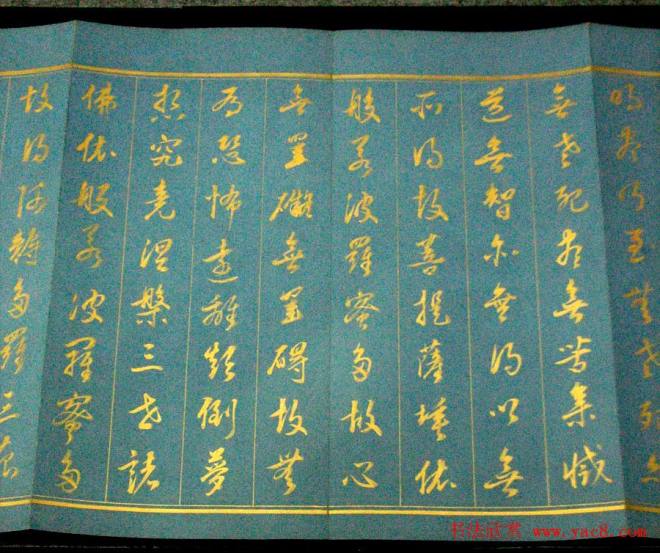 明盡乃至無老死亦
無老死盡無苦集滅
道無智亦無得以無
所得故菩提薩埵依
般若波羅蜜多故心
無罣礙無罣碍故無
有恐怖遠離顛倒夢
想究竟涅槃三世諸
佛依般若波羅蜜多
故得阿耨多羅三藐
书法欣赏 www.yac8.com